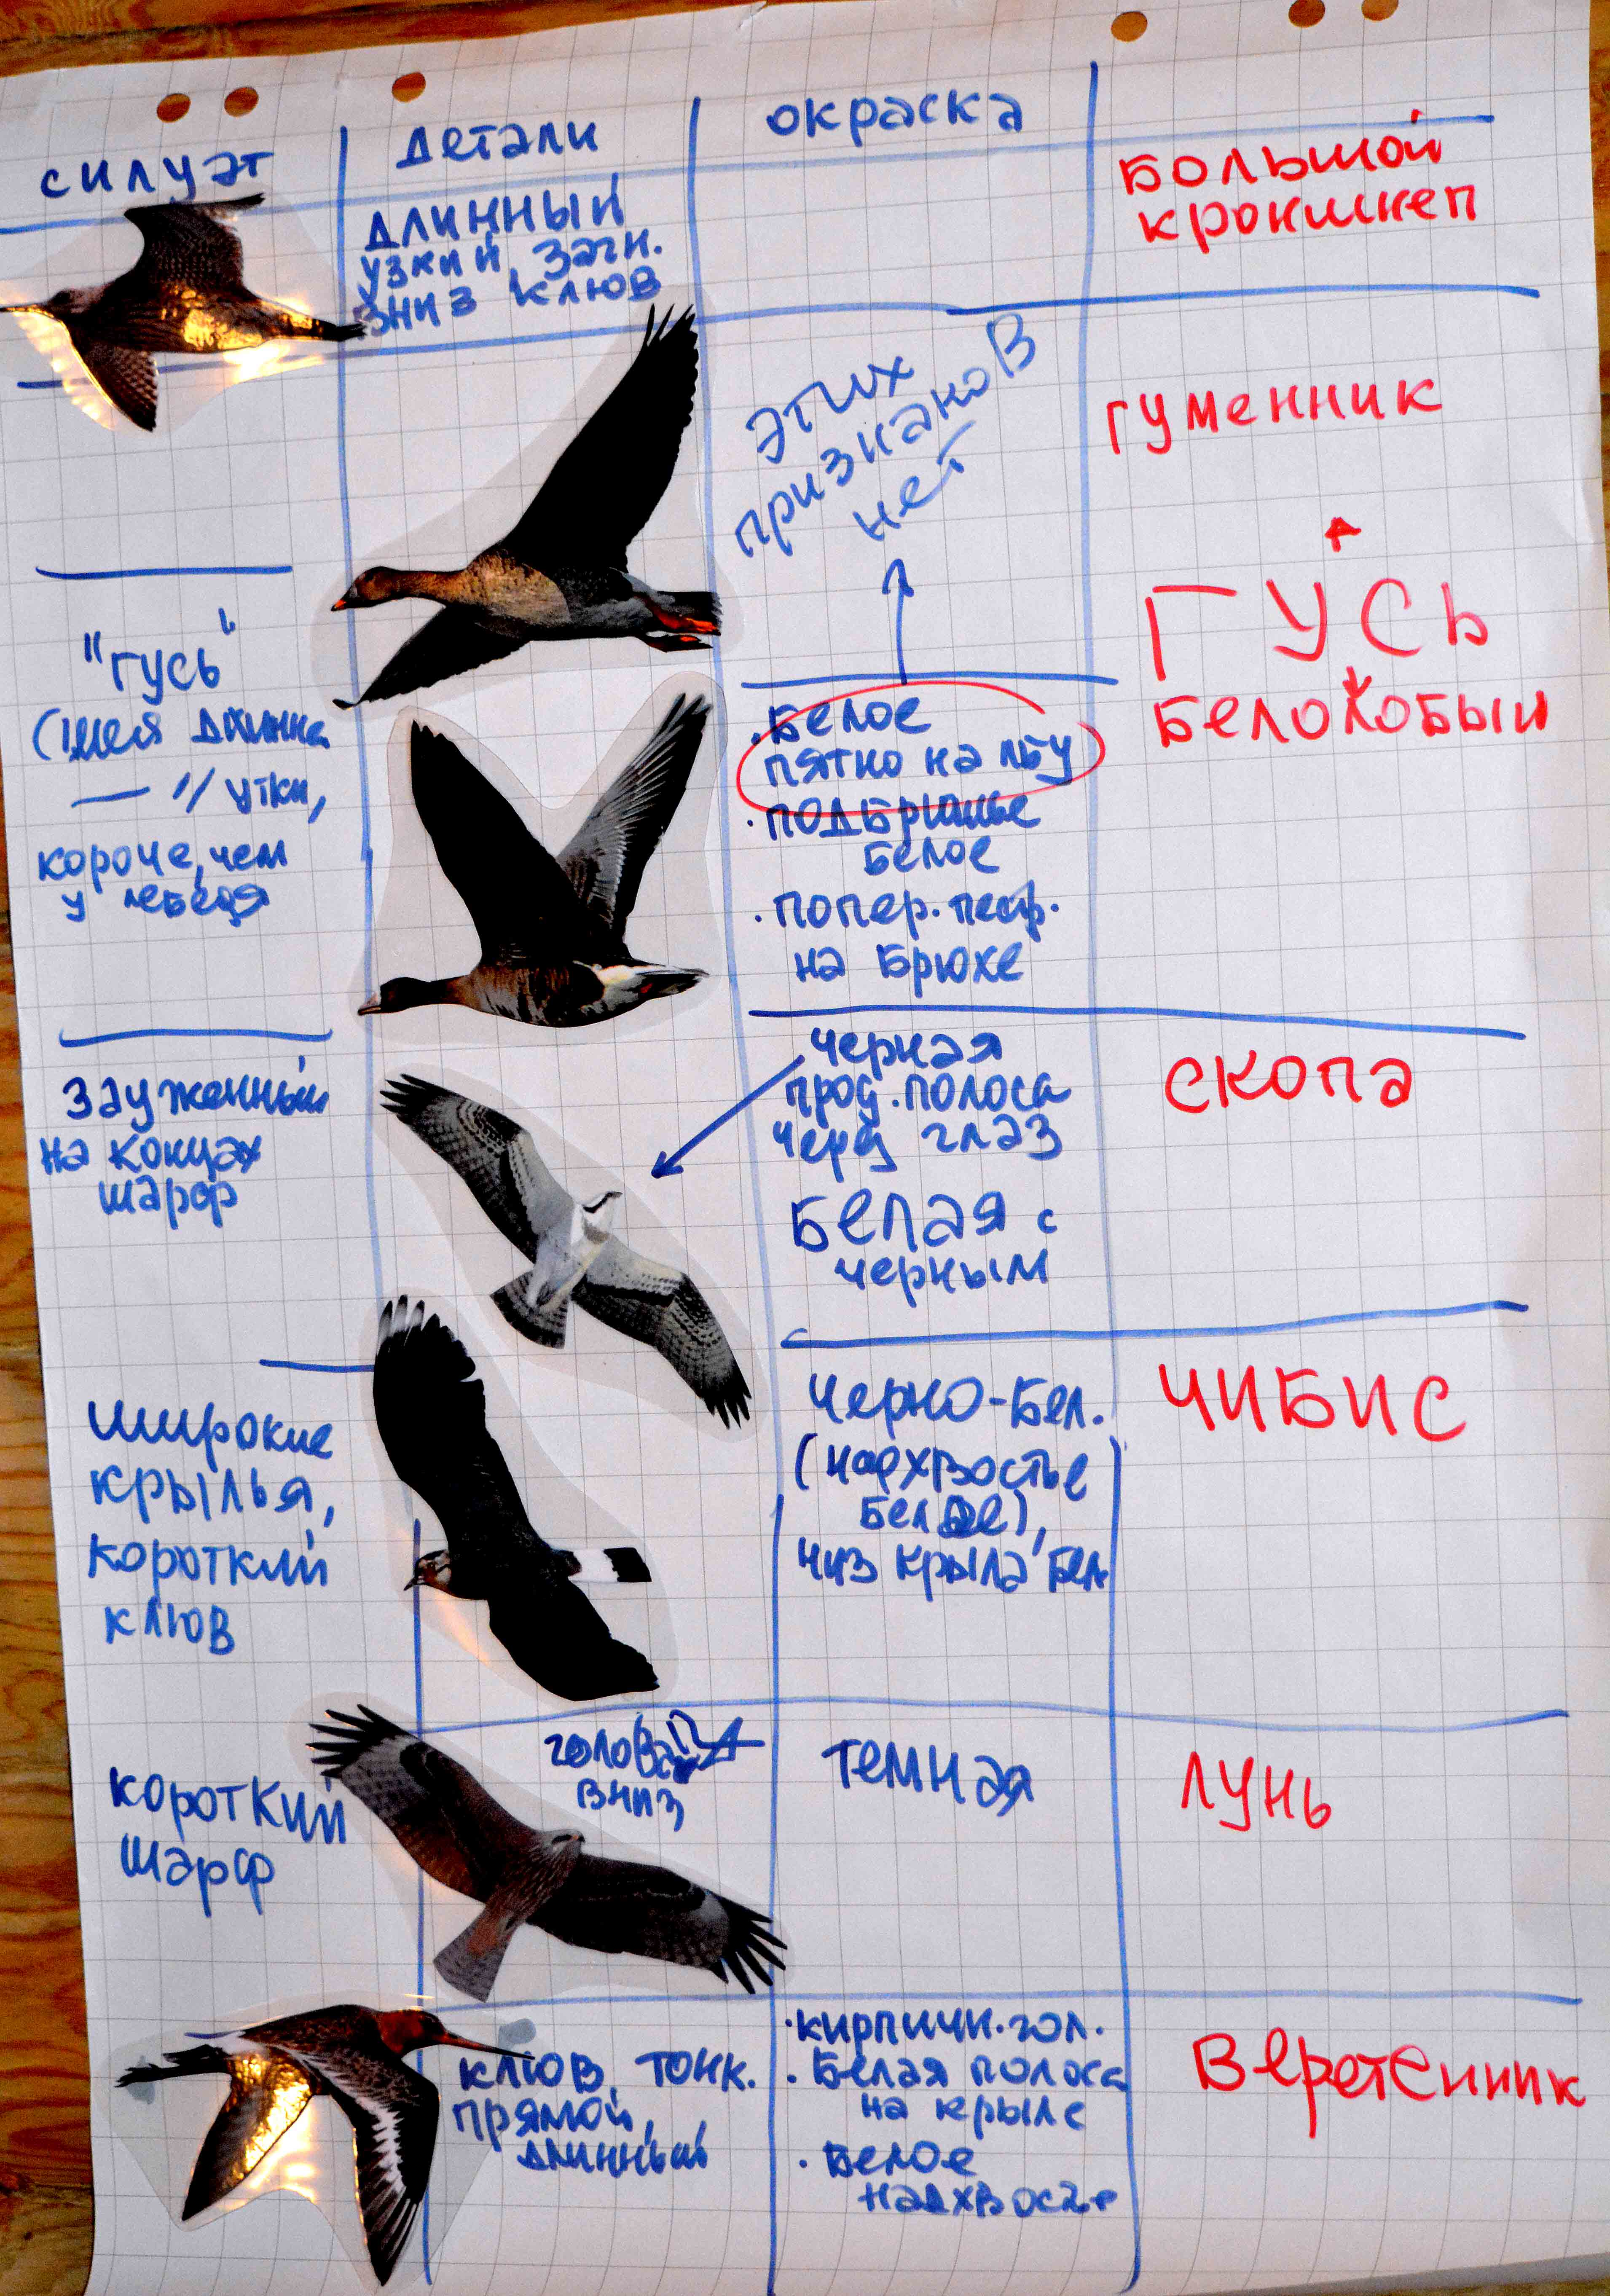 силуэт
детали
окраска
длинный
узкий, загн.
вниз клюв
Большой
кроншнеп
этих
признаков
нет
гуменник
"гусь"
(шея длинна
— // утки,
короче, чем
у лебедя
.Белое
пятно на лбу
.подбрюшье
белое
.попер. пестр.
на брюхе
ГУСЬ
Белолобый
зауженный
на концах
шарф
черная
прод. полоса
через глаз
Белая с
черным
скопа
широкие
крылья,
короткий
клюв
черно-бел.
(надхвостье
белое),
низ крыла бел
чибис
короткий
шарф
голова
вниз
темная
лунь
клюв тонк.
прямой,
длинный
.кирпичн. гол.
.Белая полоса
на крыле
.Белое
надхвостье
Веретенник